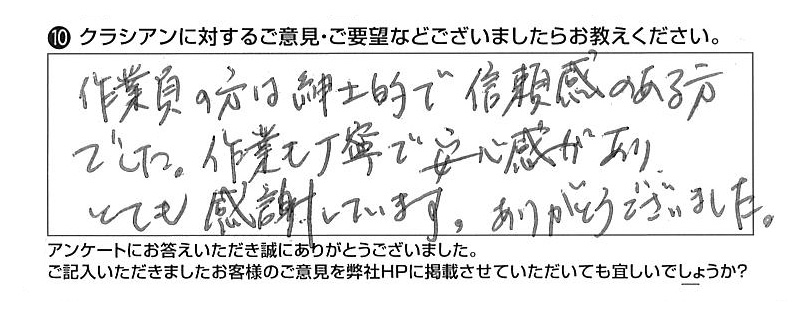 ⑩ クラシアンに対するご意見・ご要望などございましたらお教えください。
作業員の方は紳士的で信頼感のある方
でした。作業も丁寧で安心感があり
とても感謝しています。ありがとうございました。
アンケートにお答えいただき誠にありがとうございました。
ご記入いただきましたお客様のご意見を弊社HPに掲載させていただいても宜しいでしょうか?